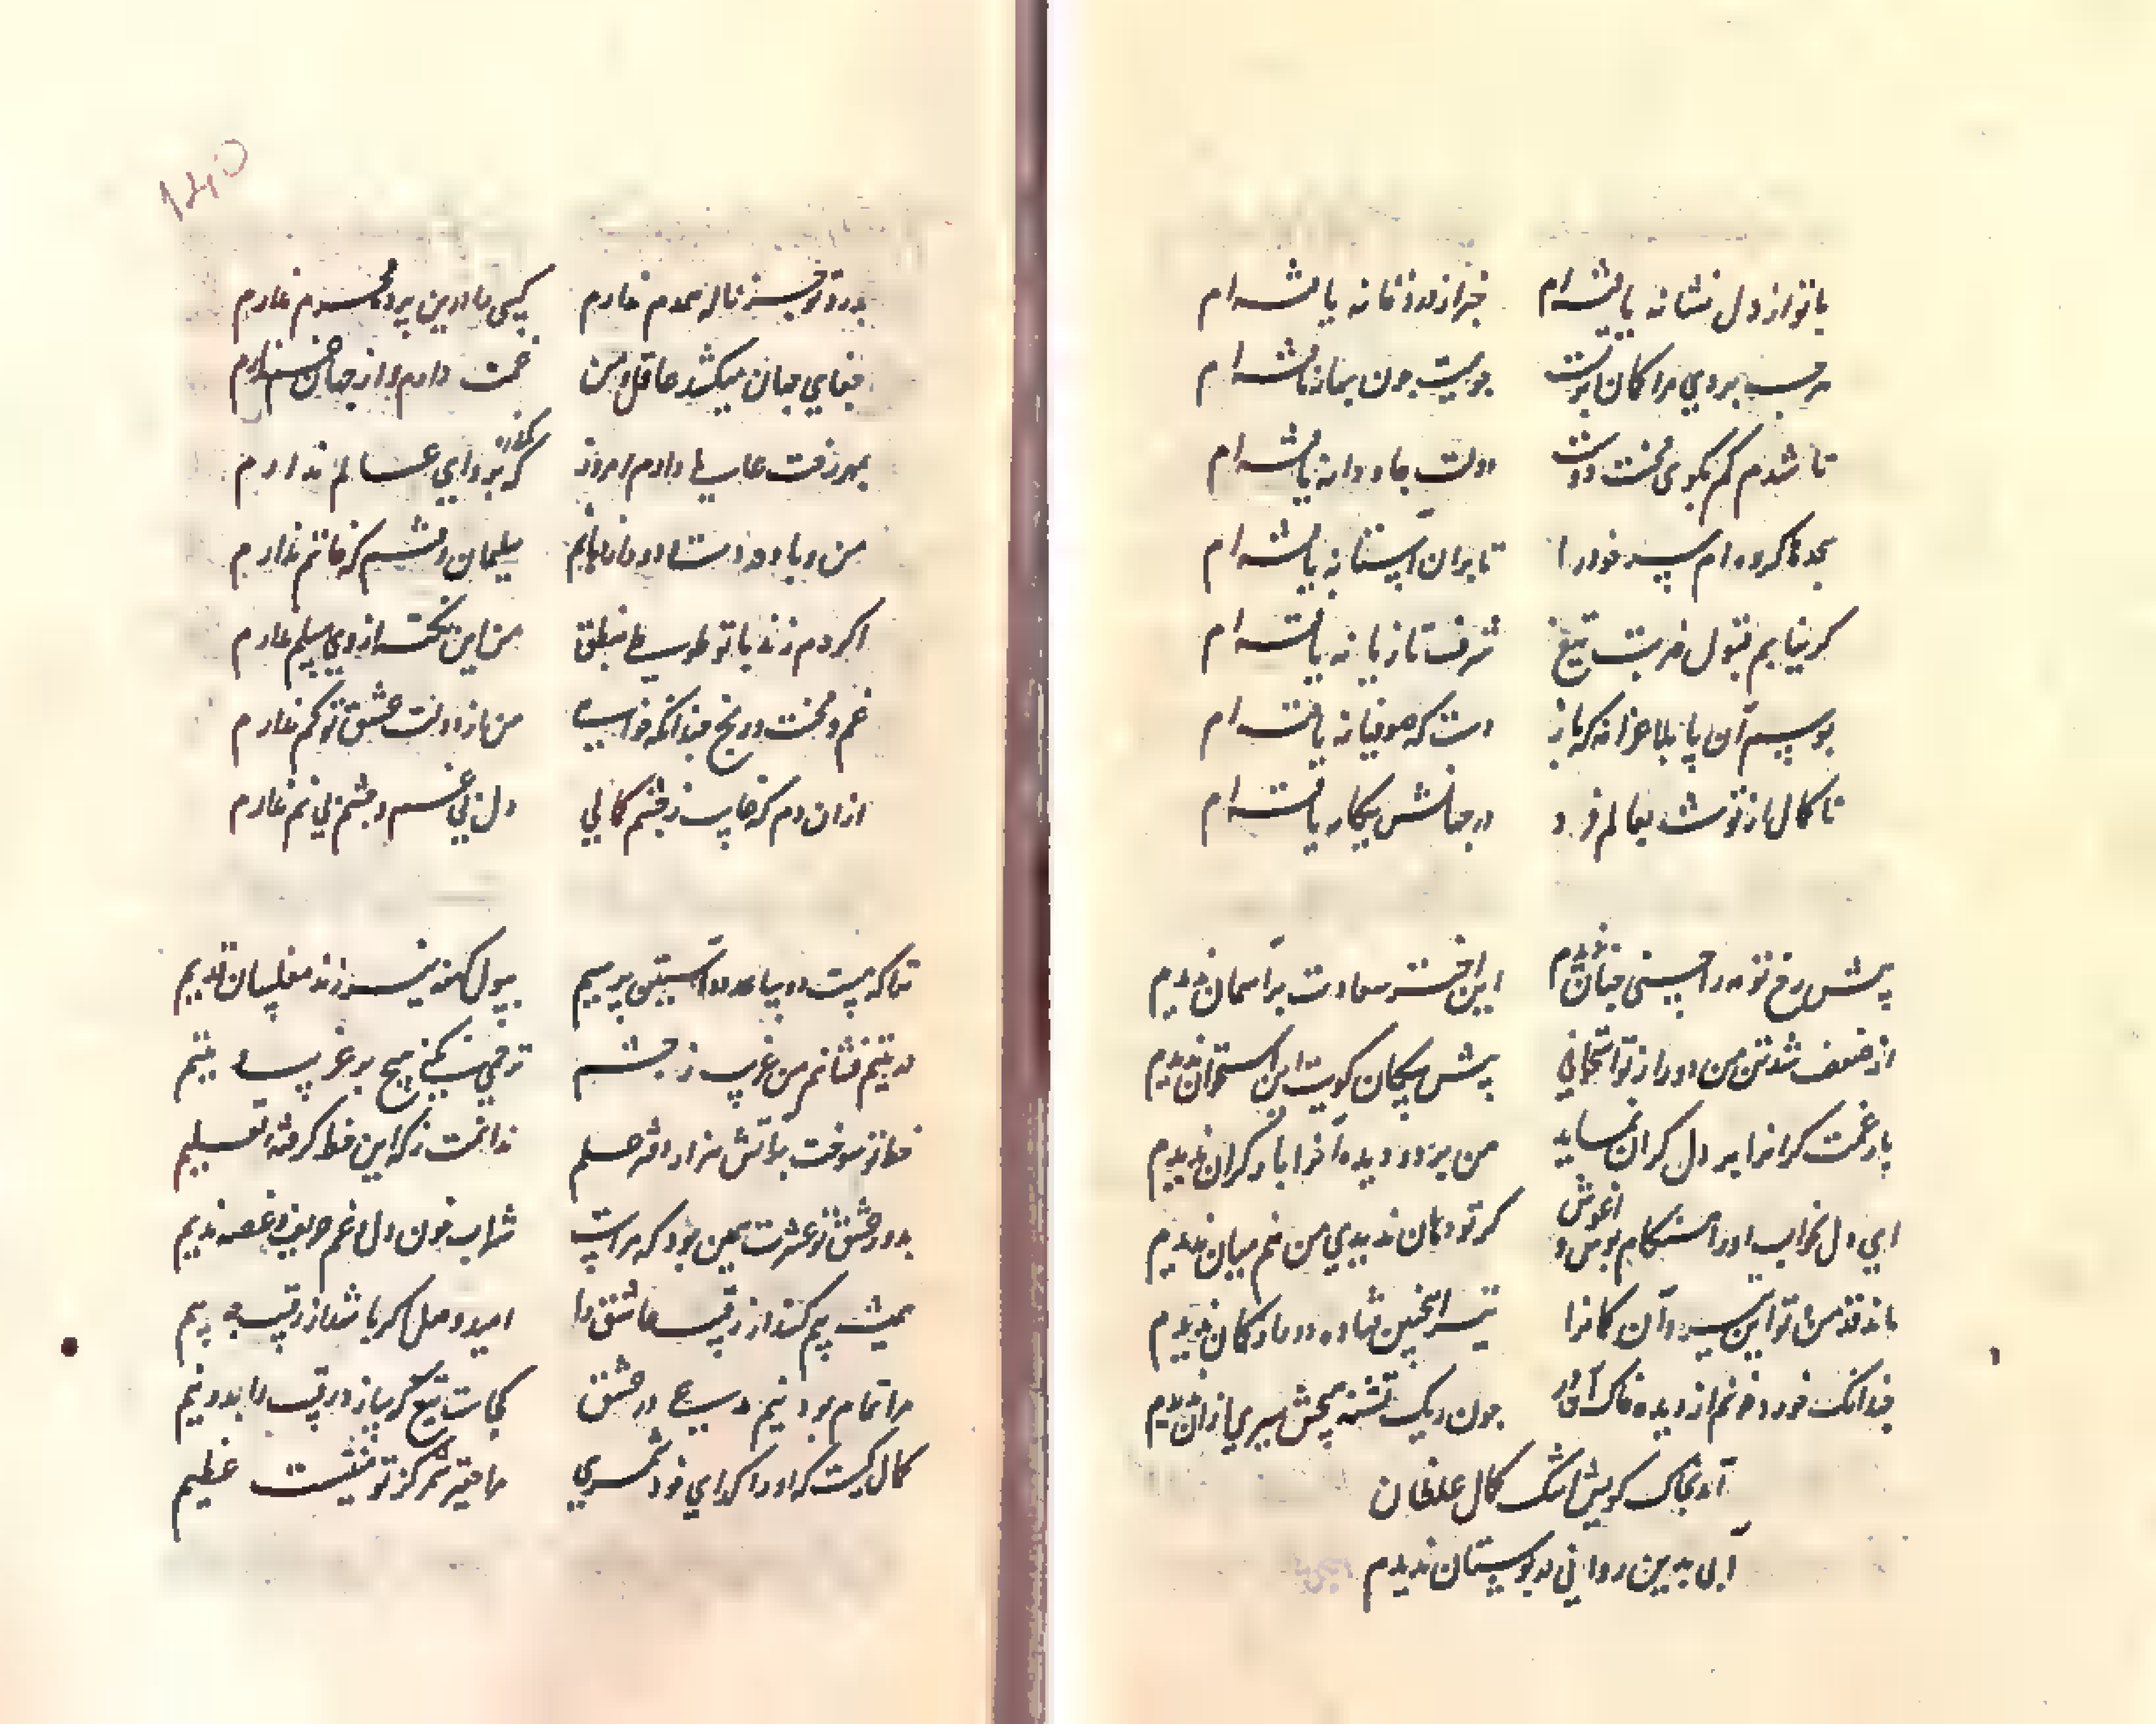 با تو از دل نشانه یافته‌ام خبر از درد نه یافته‌ام
بردی مرا کمان ابروت جون یافته‌ام
تا شدم کم بکوی محنت دوست دولت جاودانه یافته‌ام
سجدها کرده‌ام سر خود را تا بران آستانه یافته‌ام
کر نیابم قبول ضربت تیغ شرف تازیانه یافته‌ام
بوسم آن پا که باز دست که صوفیانه یافته‌ام
تا کمال از تو شد بعالم فرد در جهانش یکانه یافته‌ام
پیش رخ تو مه را حسنی چنان ندیدم این اختر سعادت بر آسمان ندیدم
از ضعف شد تن من دور از تو استخوانی پیش سکان کویت این استخوان ندیدم
بار غمت کرانرا بر دل کران نماید من بر دو دیده آنرا بار کران ندیدم
ای دل بخواب او را هنکام بوس و اغوش کر تو دهان ندیدی من هم میان ندیدم
ماند قد من و تو این تیر و آن کمانرا تیر اینچنین نهاده در هر کمان ندیدم
چندانک خورد خونم از دیده خاک آن در جون ریک تشنه هیچش سیری ازان ندیدم
آمد بخاک کویش اشک کمال غلطان
آبی بدین روانی در بوستان ندیدم
بدرد تو جز ناله همدم ندارم کسی را درین پرده محرم ندارم
جفای جهان میکشد عاقل و من غمت دارم و از جهان غم ندارم
بمهر رخت عالمی دارم امروز که پروای عالم ندارم
من و یاد سلیمان وقتم که خاتم ندارم
اکر دم زند با تو طوطی بمنطق من این نکته از وی مسلم ندارم
غم و محنت و رنج چندانکه خواهی من از دولت عشق تو کم ندارم
ازان دم که غایب ز چشم کمالی دل بی غم و چشم بی نم ندارم
بپول کهنه نیرزند مفلسان قدیم
در یتیم فشانم من غریب ز چشم ترحمی نکنی هیچ بر غریب و یتیم
خطا تو سوخت بر آتش هزار دفتر علم ندانمت ز که این خط کرفته تعلیم
بدور عشق تو عشرت همین بود که مراست شراب خون دل و غم حریف و غصه ندیم
همیشه بیم کنند از رقیب عاشق را امید وصل کر باشد از رقیب چه بیم
مرا تمام بود نیم در عشق کجاست تیغ که سازد رقیب را بدو نیم
کمال کیست که او را کدای خود شمری ما حقیر شمر کز تو نیست عظیم